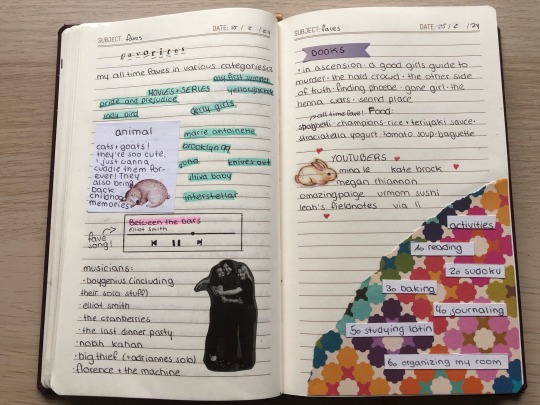 SUBJECT: faves
DATE: 25 / 2 / 24
favorites
my all time faves in various categories:
my first summer
MOVIES + SERIES yellowjackets
pride and prejudice
lady bird derry girls
marie antoinette
brooklyn 99
gone
knives out
shiva baby
interstellar
animal
cats + goats!
they're so cute,
i just wanna
cuddle them for-
ever! They
also bring
back
childhood
memories
fave
song!
Between the bars
elliot smith
musicians:
· boygenius (including
their solo stuff)
· elliot smith
· the cranberries
· the last dinner party
· noah kahan
· big thief (+ adriannes solo)
· florence + the machine
SUBJECT: faves
DATE: 25 / 2 / 24
BOOKS
· in ascension · a good girls guide to
murder · the hard crowd · the other side
of truth · finding phoebe · gone girl · the
henna wars · second place
all time fave! Food
spaghetti · champions rice + teriyaki sauce ·
straciatella yogurt · tomato soup · baguette
YOUTUBERS
mina le kate brock
megan rhiannon
amazingpaige urmom sushi
leah's fieldnotes via li
activities
1. reading
2. sudoku
3. baking
4. journaling
5. studying latin
6. organizing my room